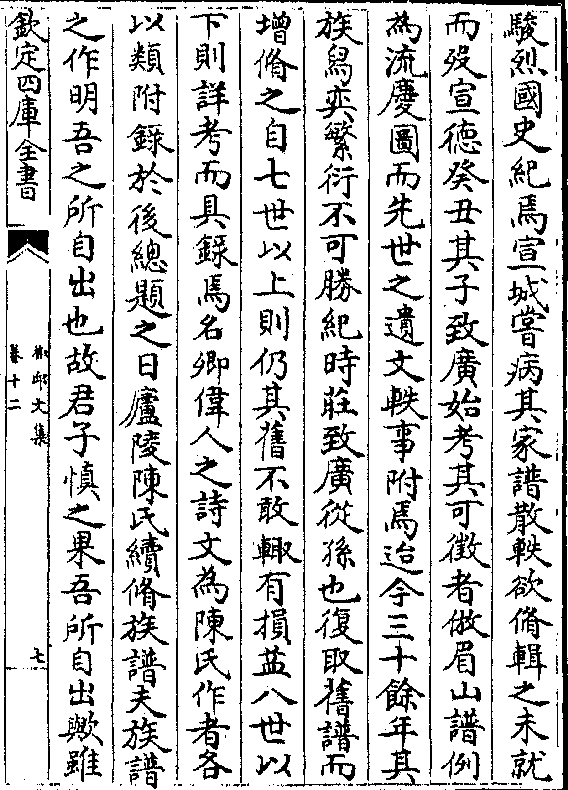 駿烈國史紀焉宣城嘗病其家譜散軼欲脩輯之未就
而歿宣德癸丑其子致廣始考其可徵者倣眉山譜例
為流慶圖而先世之遺文軼事附焉迨今三十餘年其
族舄奕繁衍不可勝紀時莊致廣從孫也復取舊譜而
增脩之自七世以上則仍其舊不敢輙有損益八世以
下則詳考而具錄焉名卿偉人之詩文為陳氏作者各
以類附錄於後總題之曰廬陵陳氏續脩族譜夫族譜
之作明吾之所自出也故君子慎之果吾所自出歟雖
欽定四庫全書
卷十二
文集
七